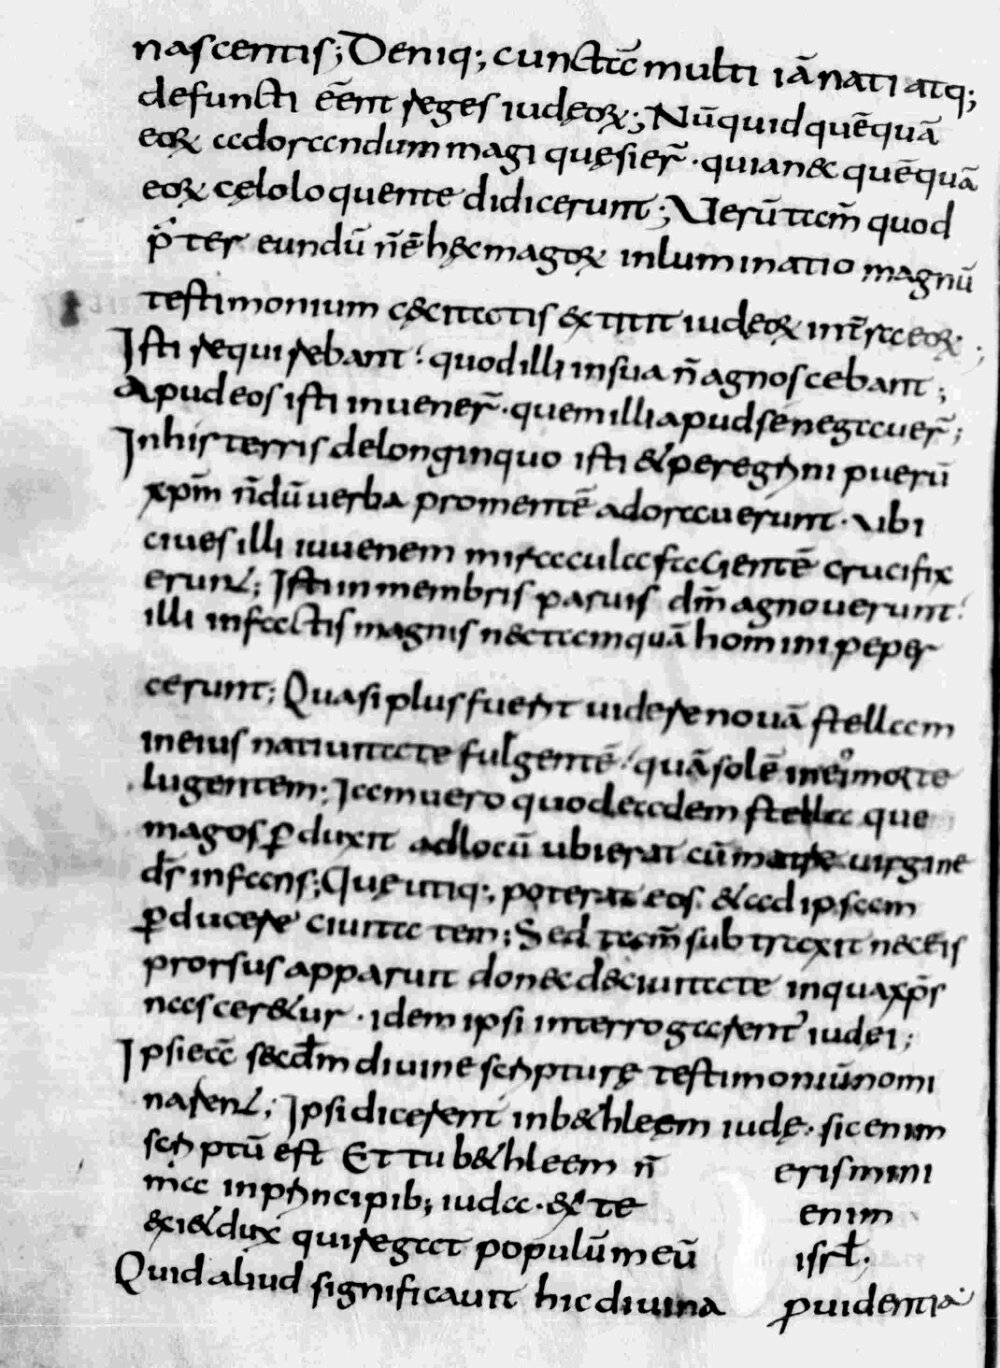 nascentis; Deniq; cū tā multi iā nati atq;
defuncti eēnt reges iudęoꝝ; Nūquid quēquā
eoꝝ adorandum magi quęsier̄ · quia nec quēquā
eoꝝ cęlo loquente didicerunt; Verū tam̄ quod
p̄ter eundū ñ ē hęc magoꝝ inluminatio magnū
testimonium cęcitatis extitit iudęoꝝ int̄ra eoꝝ;
Isti requirebant · quod illi in sua ñ agnoscebant;
Apud eos isti inuener̄ · quem illi apud se negauer̄;
In his terris de longinquo isti & peregrini puerū
xp̄m ñdū uerba promentē adorauerunt · ubi
ciues illi iuuenem miracula facientē crucifix
erunt; Isti in membris paruis dm̄ agnouerunt
illi in factis magnis nec tamquā homini peper
cerunt; Quasi plus fuerit uidere nouā stellam
in eius natiuitate fulgentē · quā solē in ei morte
lugentem; Iam uero quod eadem stella que
magos ꝑduxit ad locū ubi erat cū matre uirgine
ds̄ infans; Quę utiq; poterat eos & ad ipsam
ꝑducere ciuitatem; Sed tam̄ subtraxit nec eis
prorsus apparuit donec de ciuitate in qua xp̄s
nasceretur · idem ipsi interrogarent iudęi;
Ipsi eā secdm̄ diuine scripturę testimoniū nomi
narent; Ipsi dicerent in bethleem iudę · sic enim
scriptū est Et tu bethleem ñ eris mini
ma in principib; iuda · ex te enim
exiet dux qui regat populū meū isrl̄;
Quid aliud significauit hic diuina ꝓuidentia